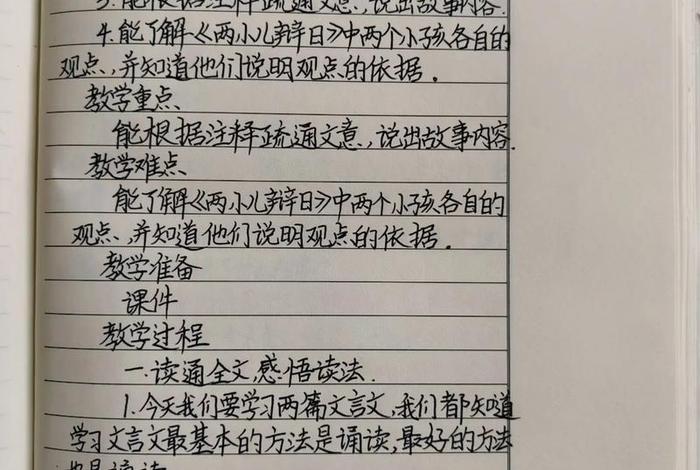 3.能根据注释疏通文意,说出故事内容.
4.能了解《两小儿辩日》中两个小孩各自的
观点,并知道他们说明观点的依据.
教学重点
能根据注释疏通文意,说出故事内容.
教学难点
能了解《两小儿辩日》中两个小孩各自的
观点,并知道他们说明观点的依据.
教学准备
课件
教学过程
一.读通全文,感悟读法.
1.今天我们要学习两篇文言文,我们都知道
学习文言文最基本的方法是诵读,最好的方法
也是诵读